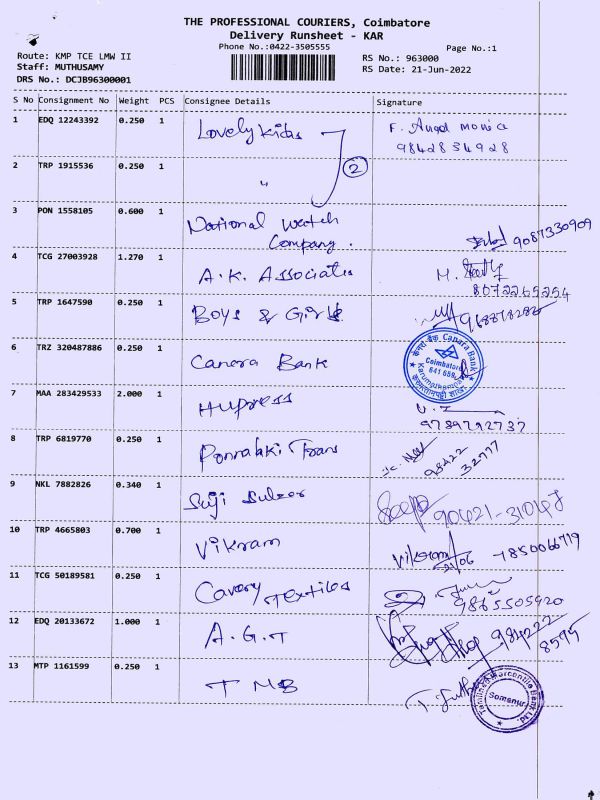 THE PROFESSIONAL COURIERS, Coimbatore
Delivery Runsheet - KAR
Phone No.:0422-3505555
Page No.:1
Route: KMP TCE LMW II
Staff: MUTHUSAMY
DRS No.: DCJB96300001
RS No.: 963000
RS Date: 21-Jun-2022
S No Consignment No Weight PCS Consignee Details Signature
1 EDQ 12243392 0.250 1 Lovely Kids F. Angel Monica
9842854928
2 TRP 1915536 0.250 1 " 2
3 PON 1558105 0.600 1 National Watch
Company. 9087330909
4 TCG 27003928 1.270 1 A.K. Associates M.
8072265254
5 TRP 1647590 0.250 1 Boys & Girls
6 TRZ 320487886 0.250 1 Canara Bank
केनरा बैंक Canara Bank
Coimbatore
641 659
7 MAA 283429533 2.000 1 Hupress
9789792737
8 TRP 6819770 0.250 1 Trans
98422
32777
9 NKL 7882826 0.340 1 Suji Sulzer
10 TRP 4665803 0.700 1 Vikram Vikram 21/06
11 TCG 50189581 0.250 1 Textiles
9865505920
12 EDQ 20133672 1.000 1 A.G.T 984222
8595
13 MTP 1161599 0.250 1 TMB T.
Tamilnad Mercantile Bank Ltd.
Somanur